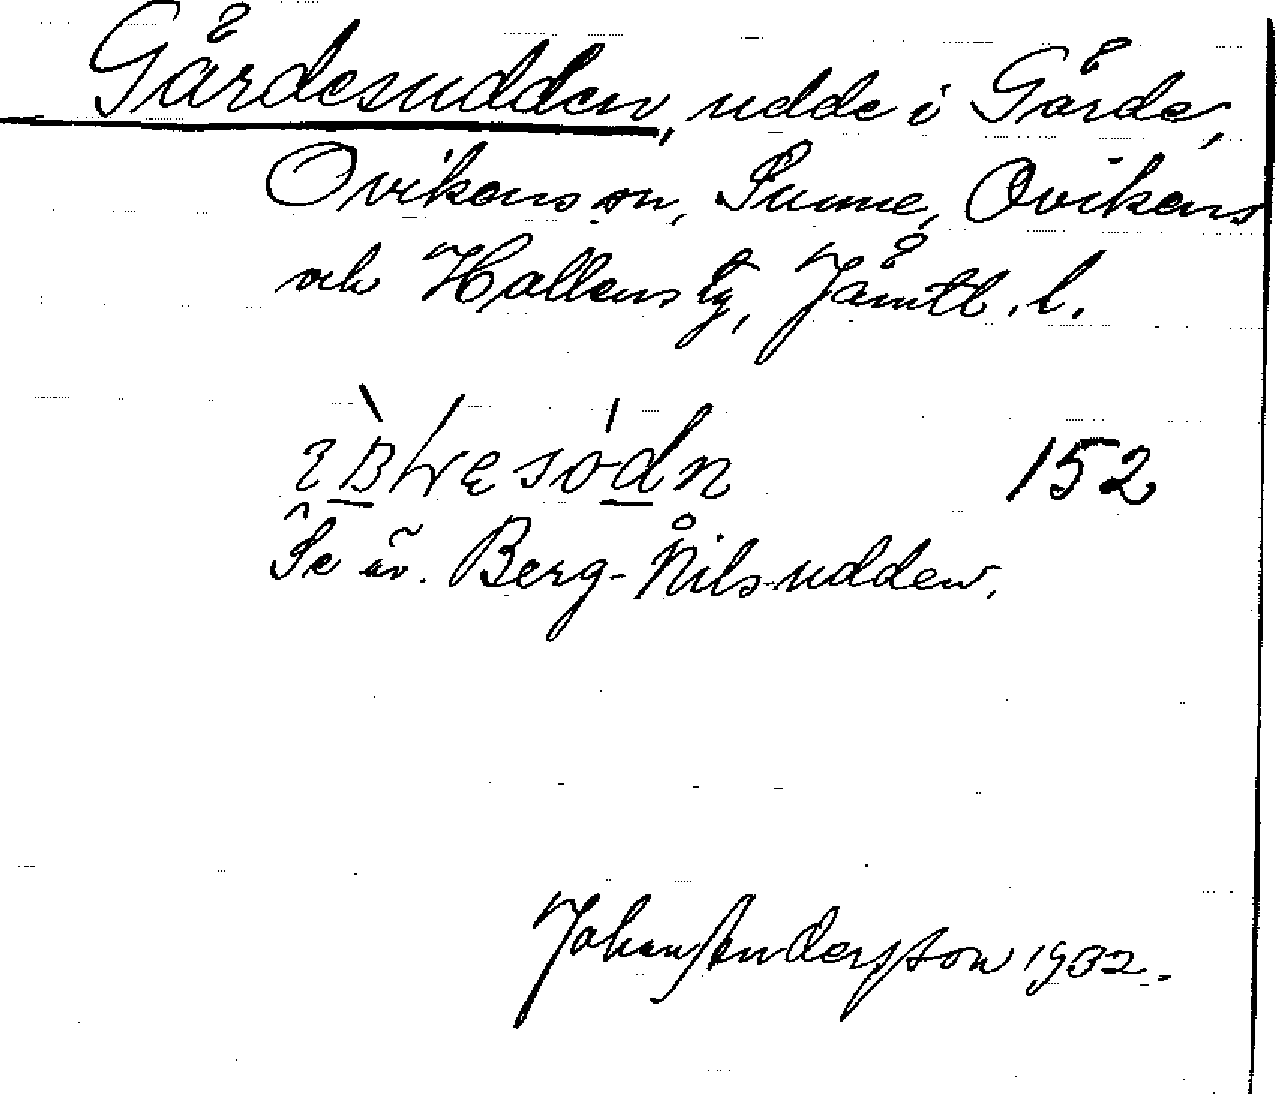 Gårdesudden, udde i Gårde,
Ovikens sn, Sunne, Ovikens
och Hallens tg, Jämtl. l.
152
Se äv. Berg-Nilsudden.
Johan Andersson 1932.